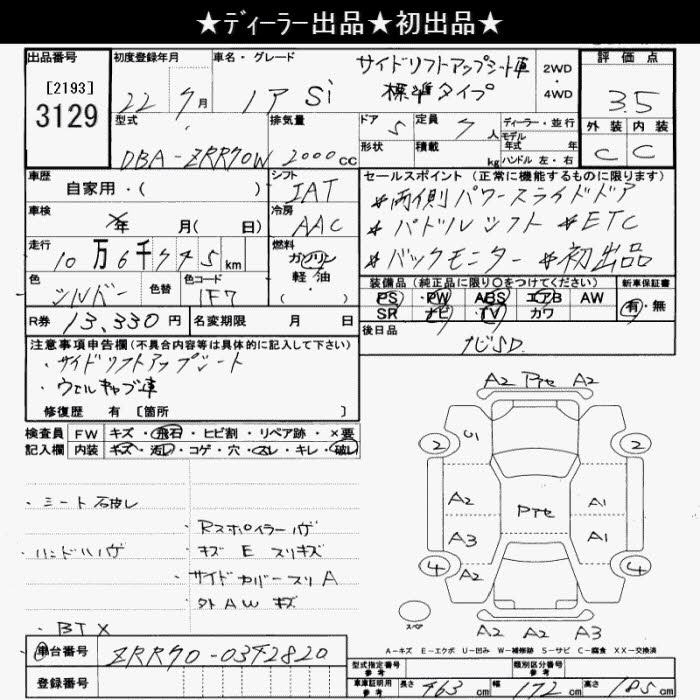 ★ディーラー出品★初出品★
出品番号 初度登録年月 車名・グレード サイドリフトアップシート車 2WD 評価点
[2193] 22 7月 ノア Si 標準タイプ ・ 4WD 3.5
3129 型式 排気量 ドア 5 定員 7人 ディーラー・並行 外装 内装
DBA-ZRR70W 2000cc 形状 積載 kg モデル年式 年式 ハンドル 左・右 C C
車歴 自家用・( ) シフト IAT セールスポイント(正常に機能するものに限ります)
車検 年 月( 日) 冷房 AAC *両側パワースライドドア
走行 10万6千745km 燃料 ガソリン *パドルシフト *ETC
色 シルバー 色替 色コード 1F7 軽油 ・( ) *バックモニター *初出品
装備品(純正品に限り○をつけてください) 新車保証書
PS ・PW ABS エアB AW 有・無
R券 13,330円 名変期限 月 日 SR ナビ TV カワ
注意事項申告欄(不具合内容等は具体的に記入して下さい) 後日品
・サイドリフトアップシート ナビSD
・ウェルキャブ車
修復歴 有 [箇所 ]
検査員 FW キズ・飛石・ヒビ割・リペア跡・×要
記入欄 内装 キズ・汚レ・コゲ・穴・スレ・キレ・破レ
A2 Pte A2
2 U1 2
A2 Pte A1
A3 A1
4 A2 4
スペア A2 A2 A3
・シート 破レ
Rスポイラーハゲ
・ハンドルハゲ ・キズ E スリキズ
・サイドカバースリA
・外AWキズ
・BT×
A-キズ E-エクボ U-凹み W-補修跡 S-サビ C-腐食 XX-交換済
車台番号 ZRR70-0342820
登録番号
型式指定番号 参考 類別区分番号 参考
車庫証明用 参考 長さ 463cm 幅 172cm 高さ 185cm